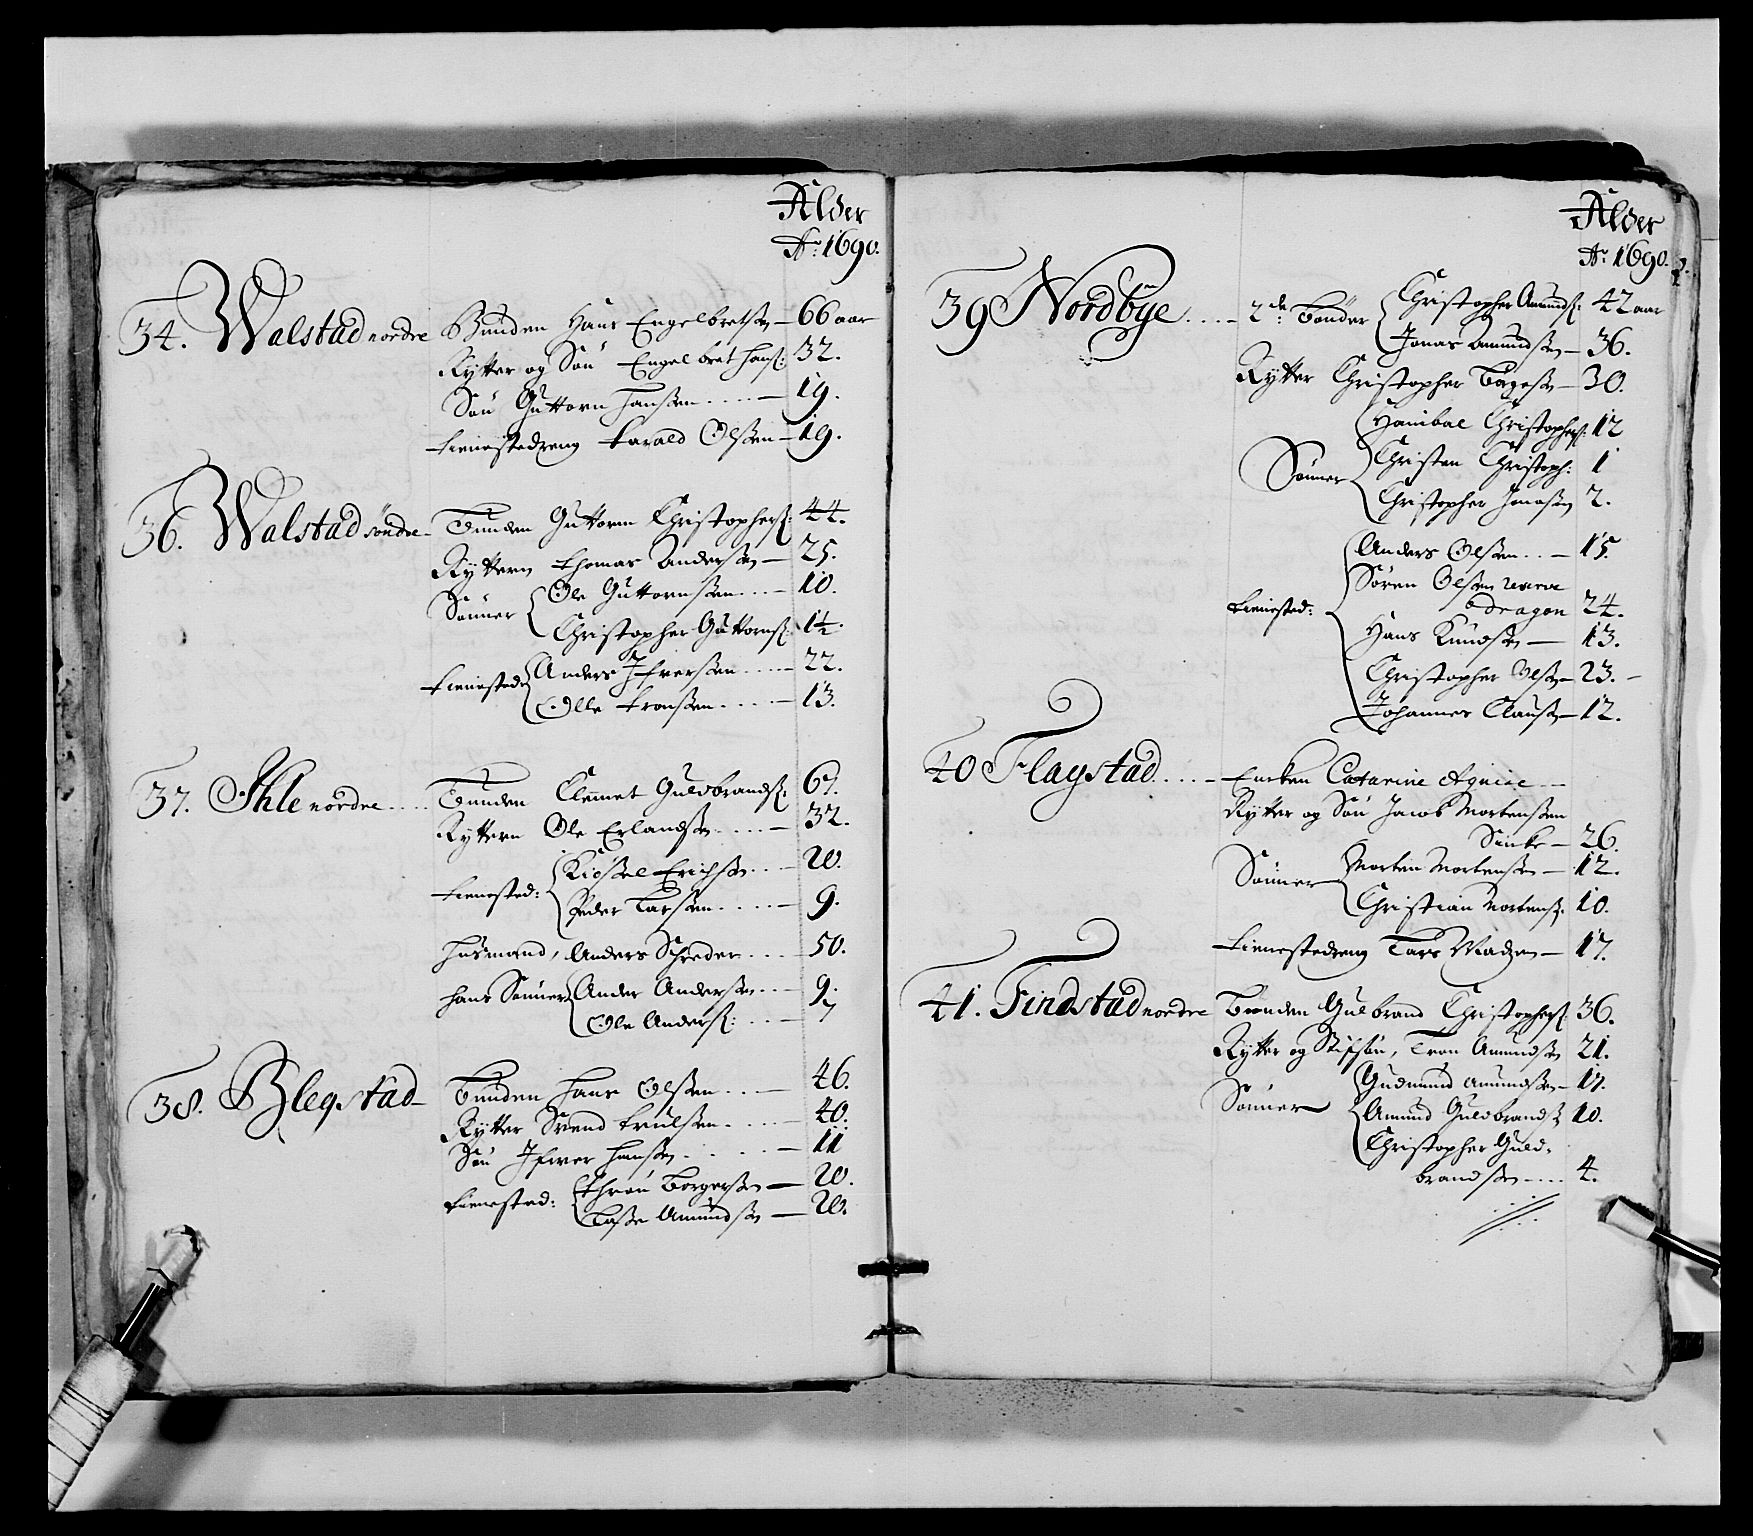 Alder
Aō: 1690.
34. Walstad nordre Bunden Hans Engelbretsøn — 66 aar
Rytter og Søn Engelbret Hans: 32.
Søn Guttorm Hanssen .... — 19.
Tienestedreng Harald Olssen — 19.
36. Walstad søndre Bunden Guttorm Christophers: 44.
Rytteren Thomas Anderssøn — 25.
Sønner Ole Guttormssen .... — 10.
Christopher Guttorms: 1½.
Tienested: Anders Ifverssen .... — 22.
Olle Tronssen .... — 13.
37. Ihle nordre .... Bunden Clemet Guldbrands: 67.
Rytteren Ole Erlandsøn .... — 32.
Tienested: Kiøstel Erichsøn ... — 20.
Peder Larssen .... — 9.
Husmand, Anders Schreder .... — 50.
Hans Sønner Ander Anderssøn ... — 9.
Ole Anders: ... — 7
38. Blegstad — Bunden Hans Olssen .... — 46.
Rytter Svend Trulssen .... — 40.
Søn Ifwer Hanssen ..... — 11
Tienested: Thron Borgerssøn — 20.
Lasse Amundsøn — 20.
Alder
Aō: 1690.
39 Nordbye .... — 2de: Bønder Christopher Amunds: 42 aar
Jonas Amundssøn — 36.
Rytter Christopher Bagesøn — 30.
Sønner Hanibal Christophers: 12
Christen Christoph: 1
Christopher Jonasøn 2.
Tienested: Anders Olssen ... — 15.
Søren Olssen reserve
dragon 24.
Hans Knudsøn — 13.
Christopher Olsøn — 23. —
Johannes Clausøn — 12.
40 Flagstad .... — Encken Catarine Agnise —
Rytter og Søn Jacob Mortenssen
Sinke — 26.
Sønner Morten Mortenssøn — 12.
Christian Mortens: 10.
Tienestedreng Lars Madzen — 17.
41. Findstad nordre Bonden Gulbrand Christophers: 36.
Rytter og Stifsøn, Tron Amundsøn 21.
Sønner Gudmund Amundssøn — 17.
Amund Guldbrands: 10.
Christopher Guld-
brandssøn .... 4.